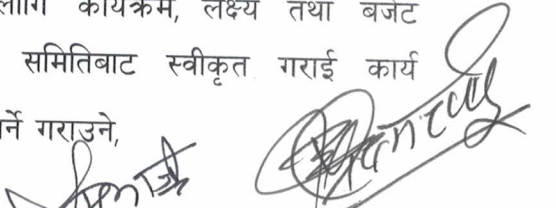 लागि कार्यक्रम, लक्ष्य तथा बजेट
समितिबाट स्वीकृत गराई कार्य
र्ने गराउने,